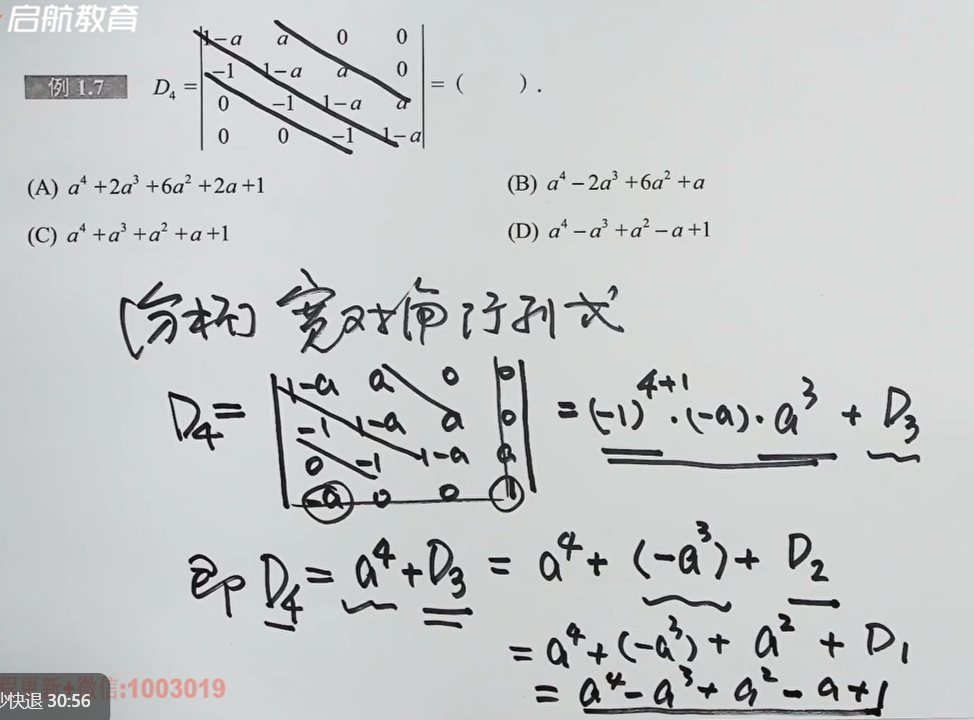 启航教育
1-a a 0 0
-1 1-a a 0
例 1.7 D₄ = = ( ).
0 -1 1-a a
0 0 -1 1-a
(A) a⁴+2a³+6a²+2a+1 (B) a⁴-2a³+6a²+a
(C) a⁴+a³+a²+a+1 (D) a⁴-a³+a²-a+1
[分析] 宽对角行列式
1-a a 0 0
-1 1-a a 0
D₄ = = (-1)⁴⁺¹·(-a)·a³ + D₃
0 -1 1-a a
-a 0 0 1
即 D₄ = a⁴+D₃ = a⁴+(-a³)+D₂
= a⁴+(-a³)+a²+D₁
= a⁴-a³+a²-a+1
快退 30:56
程更新+微信:1003019